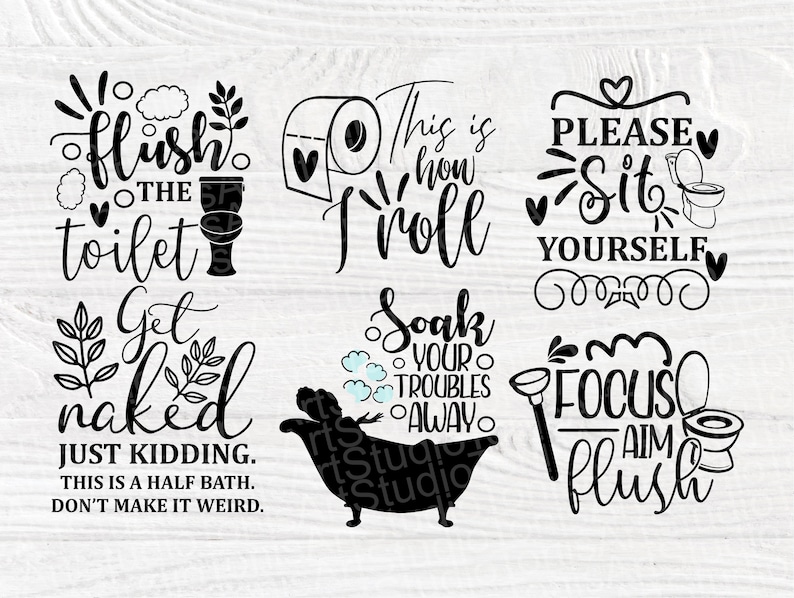 flush
THE
toilet
This is
how
I roll
PLEASE
Sit
YOURSELF
Get
naked
JUST KIDDING.
THIS IS A HALF BATH.
DON'T MAKE IT WEIRD.
Soak
YOUR
TROUBLES
AWAY
FOCUS
AIM
flush